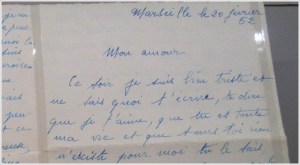 Marseille le 20 fevrier
52
Mon amour
Ce soir je suis bien triste et
ne sais quoi t'écrire, te dire
que je t'aime, que tu es toute
ma vie et que sans toi rien
n'existe pour moi tu le sais